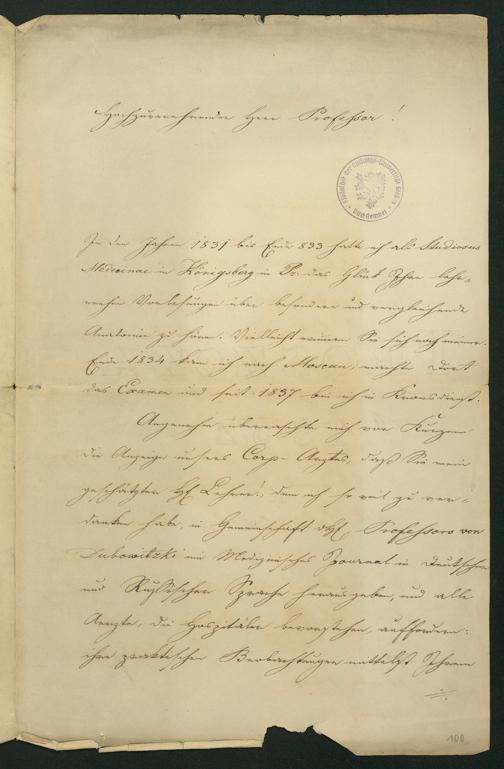 Hochzuverehrender Herr Professor!
In den Jahren 1831 bis Ende 833 hatte ich als Studiosus
Medicinae in Königsberg in Pr: das Glück Ihre lehr-
reichen Vorlesungen über besondere und vergleichende
Anatomie zu hören. Vielleicht erinnern Sie sich noch meiner.
Ende 1834 kam ich nach Moscau, machte dort
das Examen und seit 1837 bin ich in Kronsdienst.
Angenehm überraschte mich vor Kurzem
die Anzeige unseres Corps-Arztes, daß Sie mein
geschätzter Lehrer! dem ich so viel zu ver-
danken habe, in Gemeinschaft Professors von
Lubowitzki ein Medizinisches Journal in Deutscher
und Rußischer Sprache herausgeben, und alle
Aerzte, die Hospitäler bevorstehen, auffordern:
ihre praktischen Beobachtungen mittelst Ihrem
100